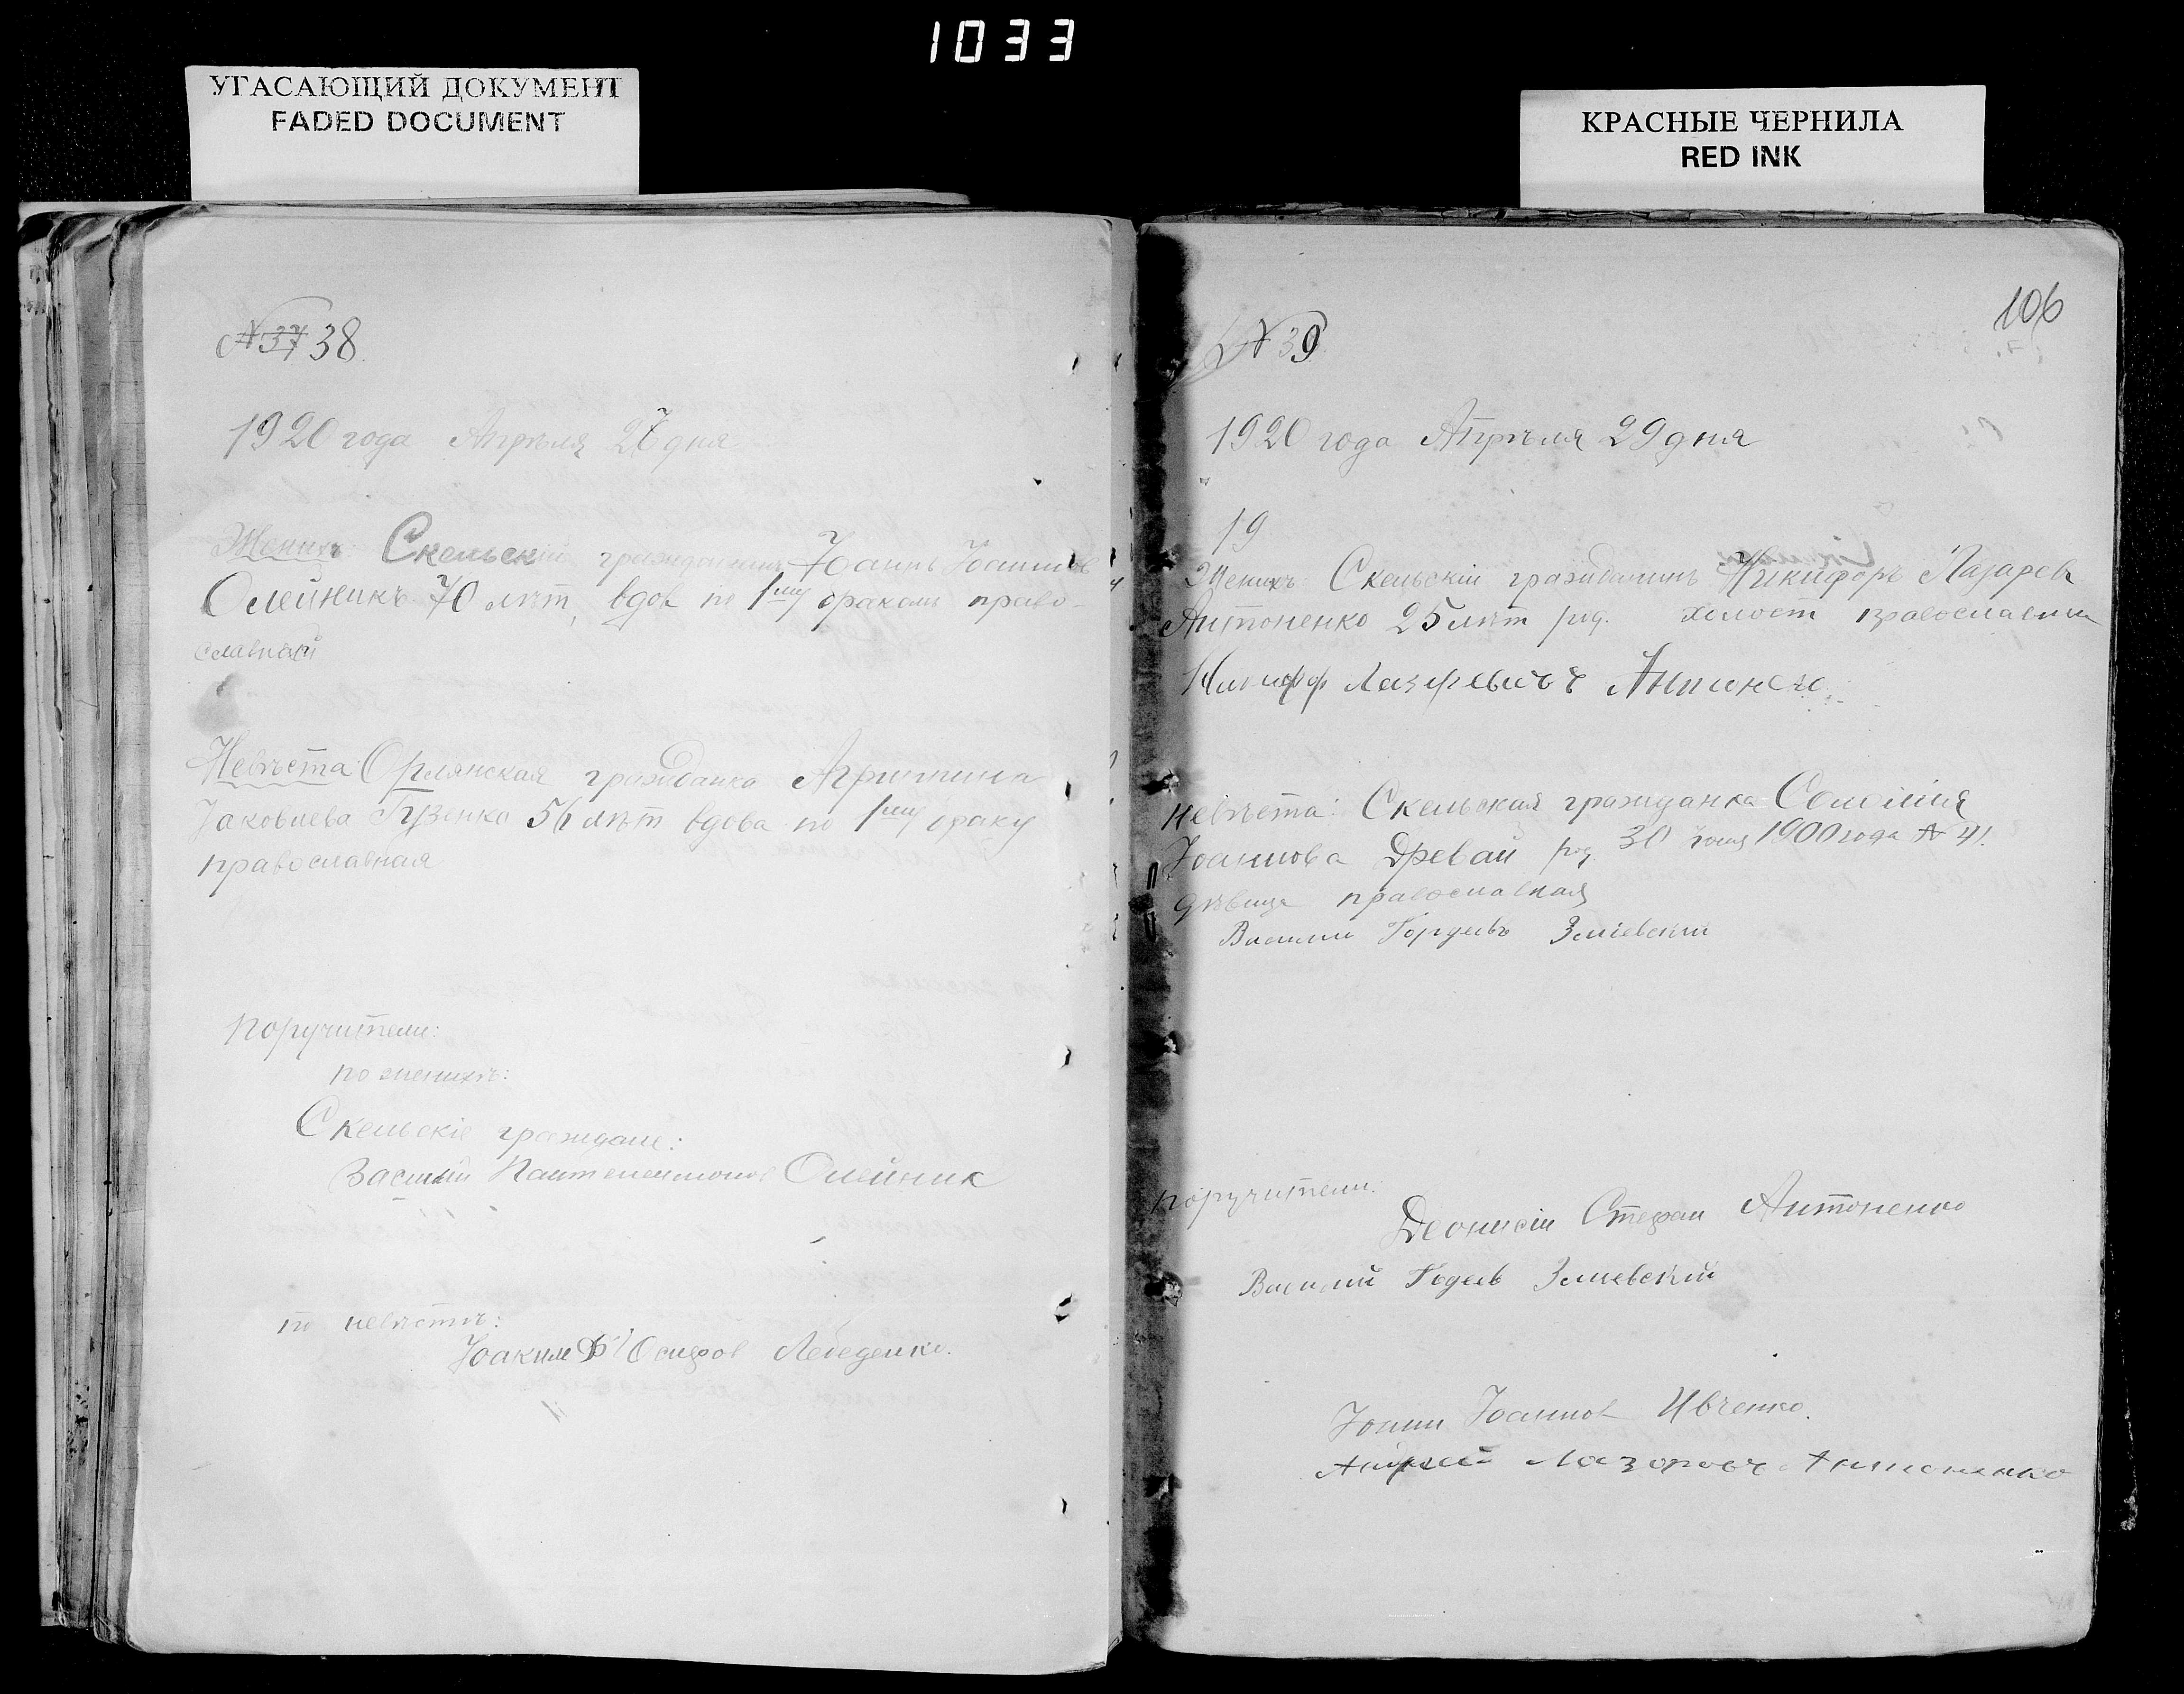 1033
УГАСАЮЩИЙ ДОКУМЕНТ
FADED DOCUMENT
КРАСНЫЕ ЧЕРНИЛА
RED INK
№ 37 38
1920 года Апрѣля 27 дня
Женихъ: Скельскій гражданинъ Іоаннъ Іоанновъ
Олейникъ 70 лѣт, вдов по 1му бракомъ право-
славный
Невѣста: Орлянская гражданка Агрипина
Іаковлева Гузенко 56 лѣт вдова по 1му браку
православная
поручители:
по женихѣ:
Скельскіе граждане:
Василий Пантелеимонов Олейник
по невѣстѣ:
Іоаким Осифов Лебеденко.
106
№ 39
1920 года Апрѣля 29 дня
19
Женихъ: Скельскій гражданинъ Никифоръ Лазарев
Антоненко 25 лѣт род. холост православный
Лазаревичъ
невѣста: Скельская гражданка Соломія
Іоаннова Древаи род. 30 1900 года № 41.
дѣвица православная
Василий Гордеевъ Змиевский
поручители:
Деонисіи Стефан Антоненко
Василий Годеев Змиевский
Іоанн Іоаннов Ивченко.
Лазоровъ Антоненко